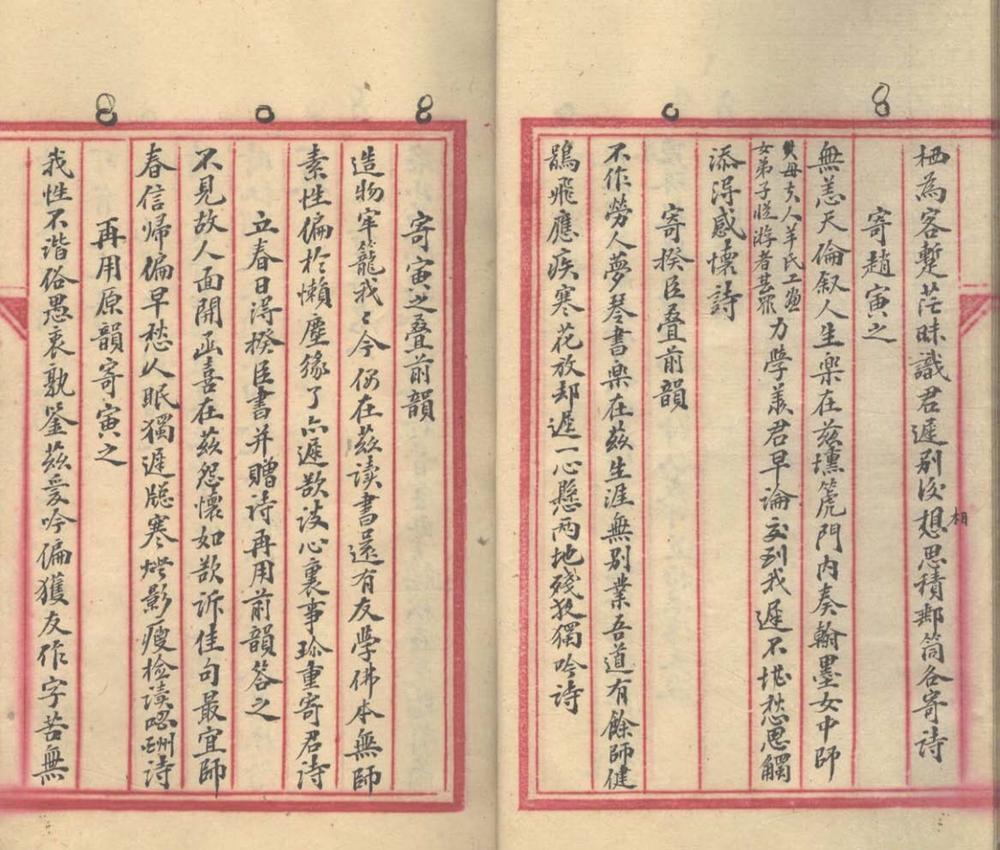 栖為客蹔茫昧識君遲别後想思積郵筒各寄詩
相
寄趙寅之
無恙天倫叙人生樂在兹壎箎門内奏翰墨女中師
母夫人羊氏工畫
女弟子從游者甚衆
力學羨君早論交到我遲不堪愁思觸
添得感懷詩
寄揆臣叠前韻
不作勞人夢琴書樂在兹生涯無别業吾道有餘師健
鶂飛應疾寒花放却遲一心懸兩地殘夜獨吟詩
寄寅之叠前韻
造物牢籠我我今仍在兹读書還有友學佛本無師
素性偏於懶塵緣了亦遲欲談心裏事珍重寄君詩
立春日得揆臣書并贈诗再用前韻答之
不見故人面開函喜在兹怨懷如欲訴佳句最宜師
春信歸偏早愁人眠獨遲牕寒燈影瘦检讀喀酬詩
再用原韻寄寅之
我性不谐俗愚衷孰鉴兹爱吟偏獲友作字苦無